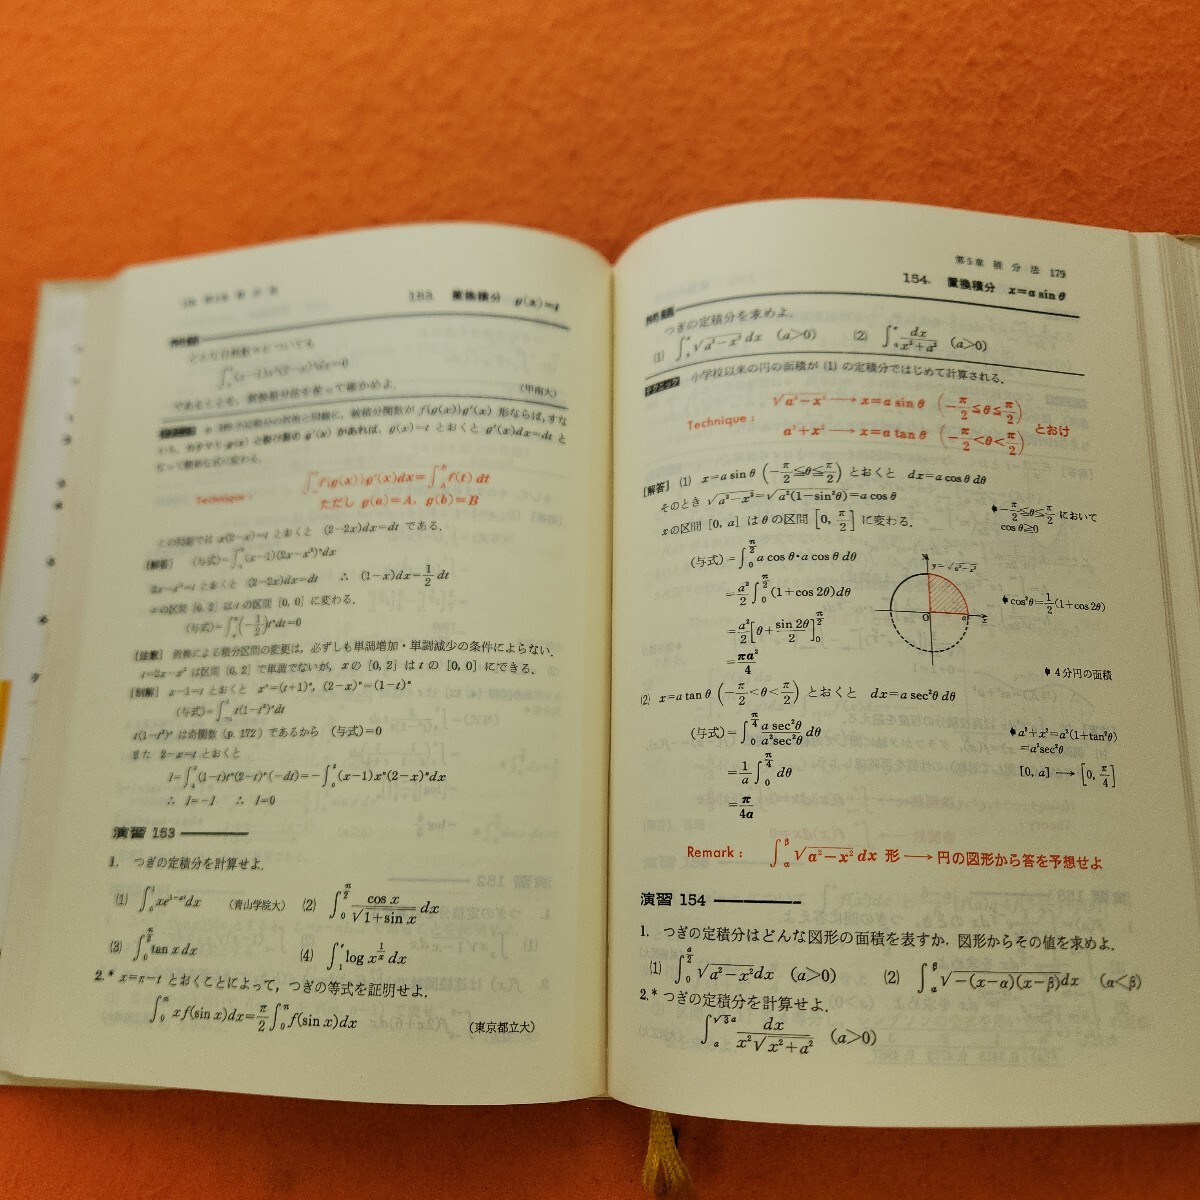 153. 置換積分 g(x)=t
問題
どんな自然数nについても
であることを，置換積分法を使って確かめよ． (甲南大)
Technique : ∫f{g(x)}g'(x)dx=∫_A^B f(t) dt
ただし g(a)=A, g(b)=B
この問題では x(2-x)=t とおくと (2-2x)dx=dt である．
[解答] (与式)=∫(x-1)(2x-x²)ⁿdx
2x-x²=t とおくと (2-2x)dx=dt ∴ (1-x)dx=1/2 dt
xの区間 [0, 2] はtの区間 [0, 0] に変わる．
(与式)=∫(-1/2)tⁿdt=0
[注意] 置換による積分区間の変更は，必ずしも単調増加・単調減少の条件によらない．
t=2x-x² は区間 [0, 2] で単調でないが，xの [0, 2] はtの [0, 0] にできる．
[別解] x-1=t とおくと xⁿ=(t+1)ⁿ, (2-x)ⁿ=(1-t)ⁿ
(与式)=∫t(1-t²)ⁿdt
t(1-t²)ⁿ は奇関数 (p. 172) であるから (与式)=0
また 2-x=t とおくと
I=∫(1-t)tⁿ(2-t)ⁿ(-dt)=-∫(x-1)xⁿ(2-x)ⁿdx
∴ I=-I ∴ I=0
演習 153
1. つぎの定積分を計算せよ．
(1) (青山学院大) (2) ∫_0^{π/2} cos x/√(1+sin x) dx
(3) ∫_0 tan x dx (4) ∫_1^e log x^{1/x} dx
2.* x=π-t とおくことによって，つぎの等式を証明せよ．
∫_0^π x f(sin x)dx=π/2∫_0^π f(sin x)dx (東京都立大)
第5章 積分法 179
154. 置換積分 x=a sin θ
問題 つぎの定積分を求めよ．
(1) ∫√(a²-x²) dx (a>0) (2) ∫dx/(x²+a²) (a>0)
テクニック 小学校以来の円の面積が (1) の定積分ではじめて計算される．
Technique : √(a²-x²) ⟶ x=a sin θ (-π/2≦θ≦π/2)
a²+x² ⟶ x=a tan θ (-π/2<θ<π/2) とおけ
[解答] (1) x=a sin θ (-π/2≦θ≦π/2) とおくと dx=a cos θ dθ
そのとき √(a²-x²)=√(a²(1-sin²θ))=a cos θ
xの区間 [0, a] はθの区間 [0, π/2] に変わる．
-π/2≦θ≦π/2 において
cos θ≧0
(与式)=∫_0^{π/2} a cos θ•a cos θ dθ
=a²/2∫_0^{π/2}(1+cos 2θ)dθ
=a²/2[θ+sin 2θ/2]_0^{π/2}
=πa²/4
y=√(a²-x²)
O a x
cos²θ=1/2(1+cos 2θ)
4分円の面積
(2) x=a tan θ (-π/2<θ<π/2) とおくと dx=a sec²θ dθ
(与式)=∫_0^{π/4} a sec²θ/a²sec²θ dθ
=1/a∫_0^{π/4} dθ
=π/4a
a²+x²=a²(1+tan²θ)
=a²sec²θ
[0, a] ⟶ [0, π/4]
Remark : ∫_α^β √(a²-x²) dx 形 ⟶ 円の図形から答を予想せよ
演習 154
1. つぎの定積分はどんな図形の面積を表すか．図形からその値を求めよ．
(1) ∫_0^{a/2} √(a²-x²)dx (a>0) (2) ∫_α^β √(-(x-α)(x-β))dx (α<β)
2.* つぎの定積分を計算せよ．
∫_a^{√3a} dx/(x²√(x²+a²)) (a>0)